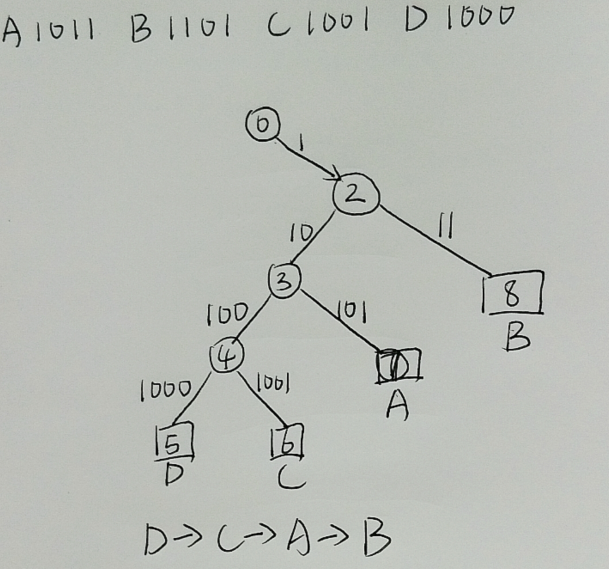 A 1011 B 1101 C 1001 D 1000
0
1
2
10 11
3 8
100 101 B
4
1000 1001 A
5 6
D C
D→C→A→B